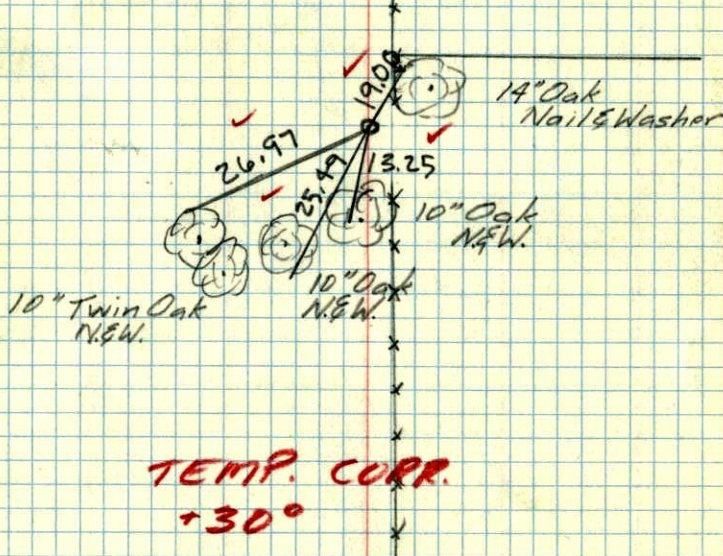 19.00
14" Oak
Nail & Washer
26.97
25.49
13.25
10" Oak
N.&W.
10" Oak
N.&W.
10" Twin Oak
N.&W.
TEMP. CORR.
+30°